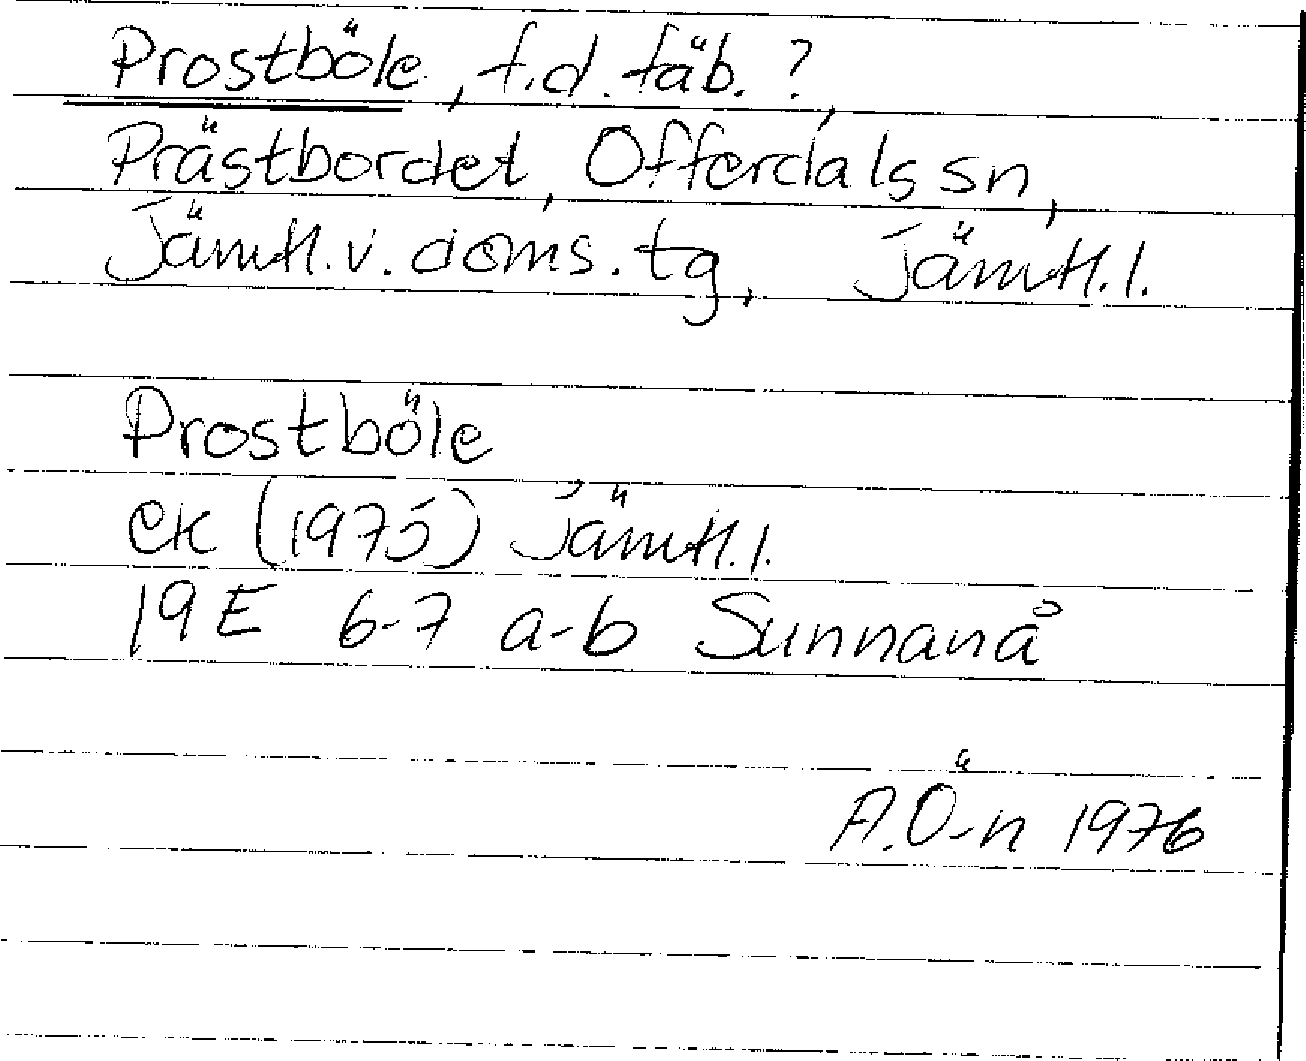 Prostböle, f.d. fäb. ?,
Prästbordet, Offerdals sn,
Jämtl. v. doms. tg, Jämtl. l.
Prostböle
ek (1975) Jämtl. l.
19E 6-7 a-b Sunnanå
A.Ö-n 1976